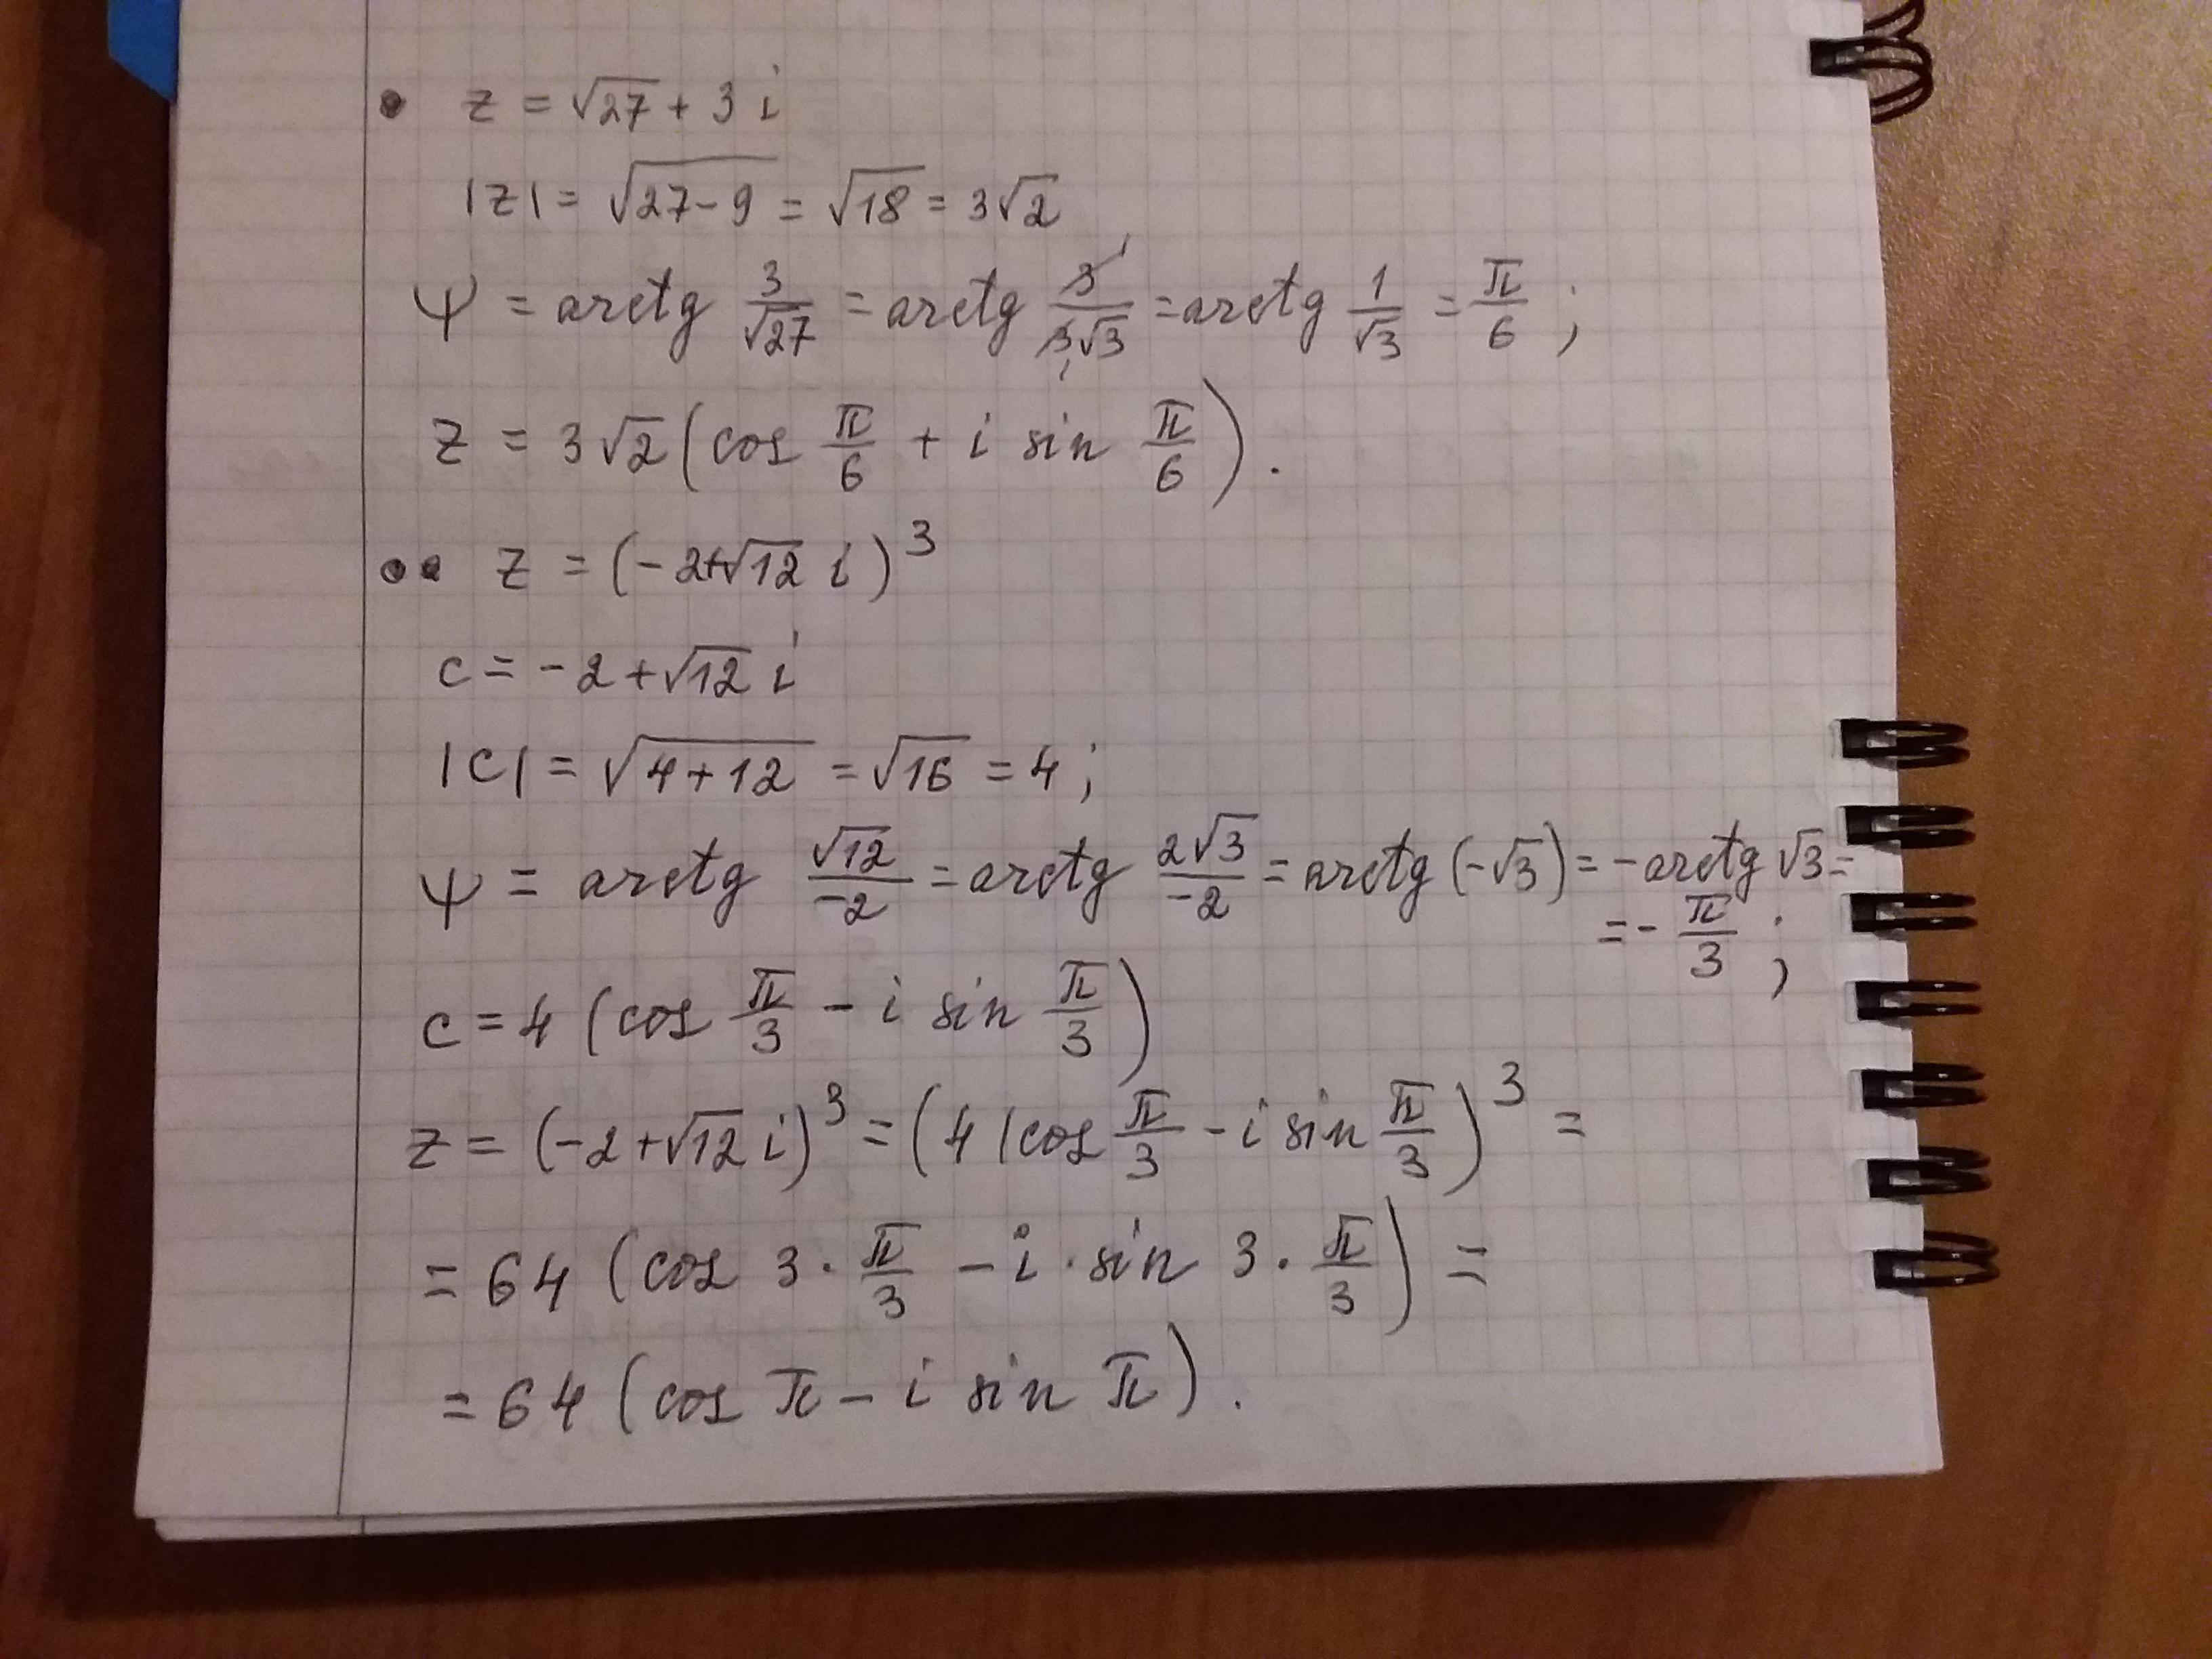 • z = √27 + 3 i
|z| = √(27-9) = √18 = 3√2
ψ = arctg 3/√27 = arctg 3/(3√3) = arctg 1/√3 = π/6 ;
z = 3√2 (cos π/6 + i sin π/6).
•• z = (-2+√12 i)³
c = -2 + √12 i
|c| = √(4+12) = √16 = 4 ;
ψ = arctg √12/-2 = arctg 2√3/-2 = arctg (-√3) = - arctg √3 =
= - π/3 ;
c = 4 (cos π/3 - i sin π/3)
z = (-2+√12 i)³ = (4 (cos π/3 - i sin π/3)³ =
= 64 (cos 3 · π/3 - i · sin 3 · π/3) =
= 64 (cos π - i sin π).